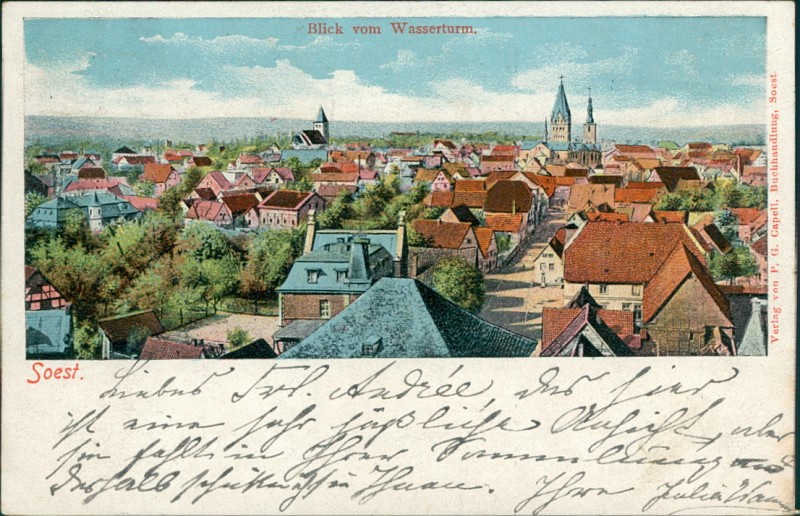 Blick vom Wasserturm.
Verlag von P. G. Capell, Buchhandlung, Soest.
Soest.
Liebes Frl. Andrée, das hier
ist eine sehr häßliche Ansicht, aber
sie fehlt in Ihrer Sammlung und
deshalb ich sie Ihnen. Ihre Julia